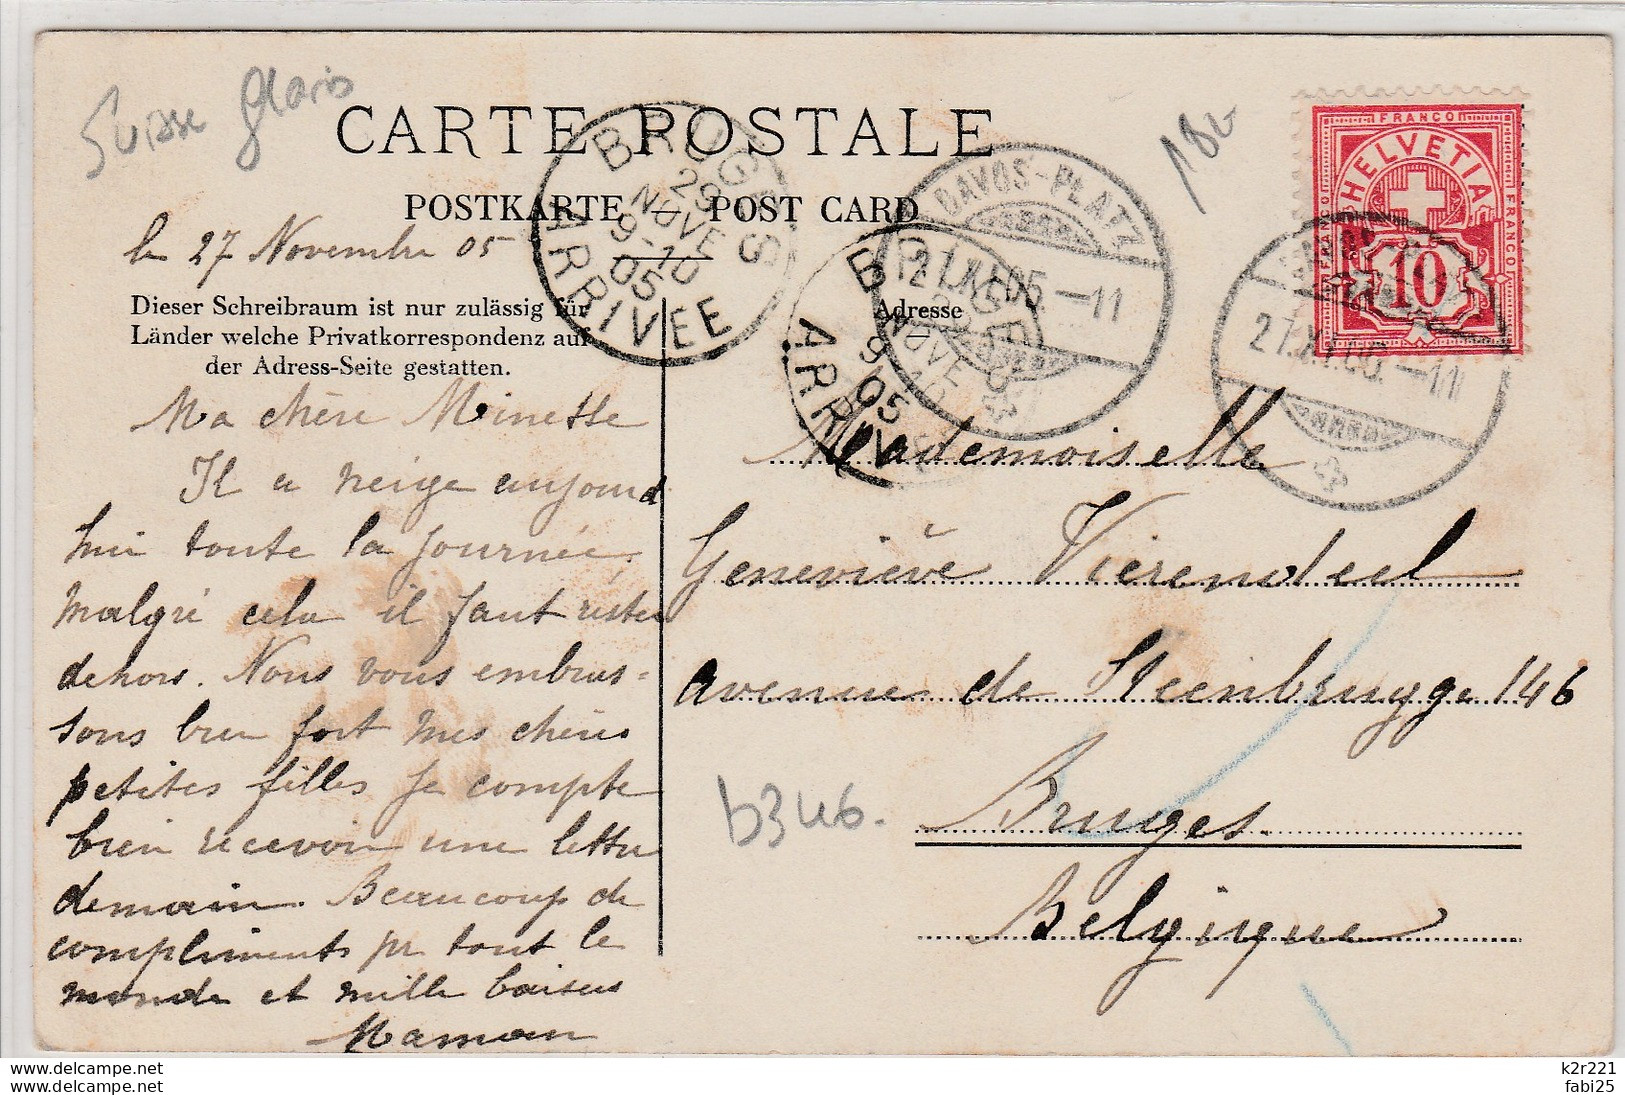 Suisse Glaris
CARTE POSTALE
POSTKARTE — POST CARD
180
FRANCO
HELVETIA
FRANCO
FRANCO
10
DAVOS-PLATZ
27.XI.05.–11
27.XI.05.–11
BRUGES
29
NOVE
9-10
05
ARRIVÉE
BRUGES
29
NOVE
9-10
05
ARRIVÉE
le 27 Novembre 05
Dieser Schreibraum ist nur zulässig für
Länder welche Privatkorrespondenz auf
der Adress-Seite gestatten.
Ma chère Minette
Il a neigé aujourd
hui toute la journée.
Malgré cela il faut rester
dehors. Nous vous embras=
sons bien fort mes chères
petites filles je compte
bien recevoir une lettre
demain. Beaucoup de
compliments pr tout le
monde et mille baisers
Maman
Adresse
Mademoiselle
Geneviève Vierendeel
avenue de Steenbrugge 146
Bruges.
Belgique
b346.
delcampe.net
delcampe.net
k2r221
fabi25